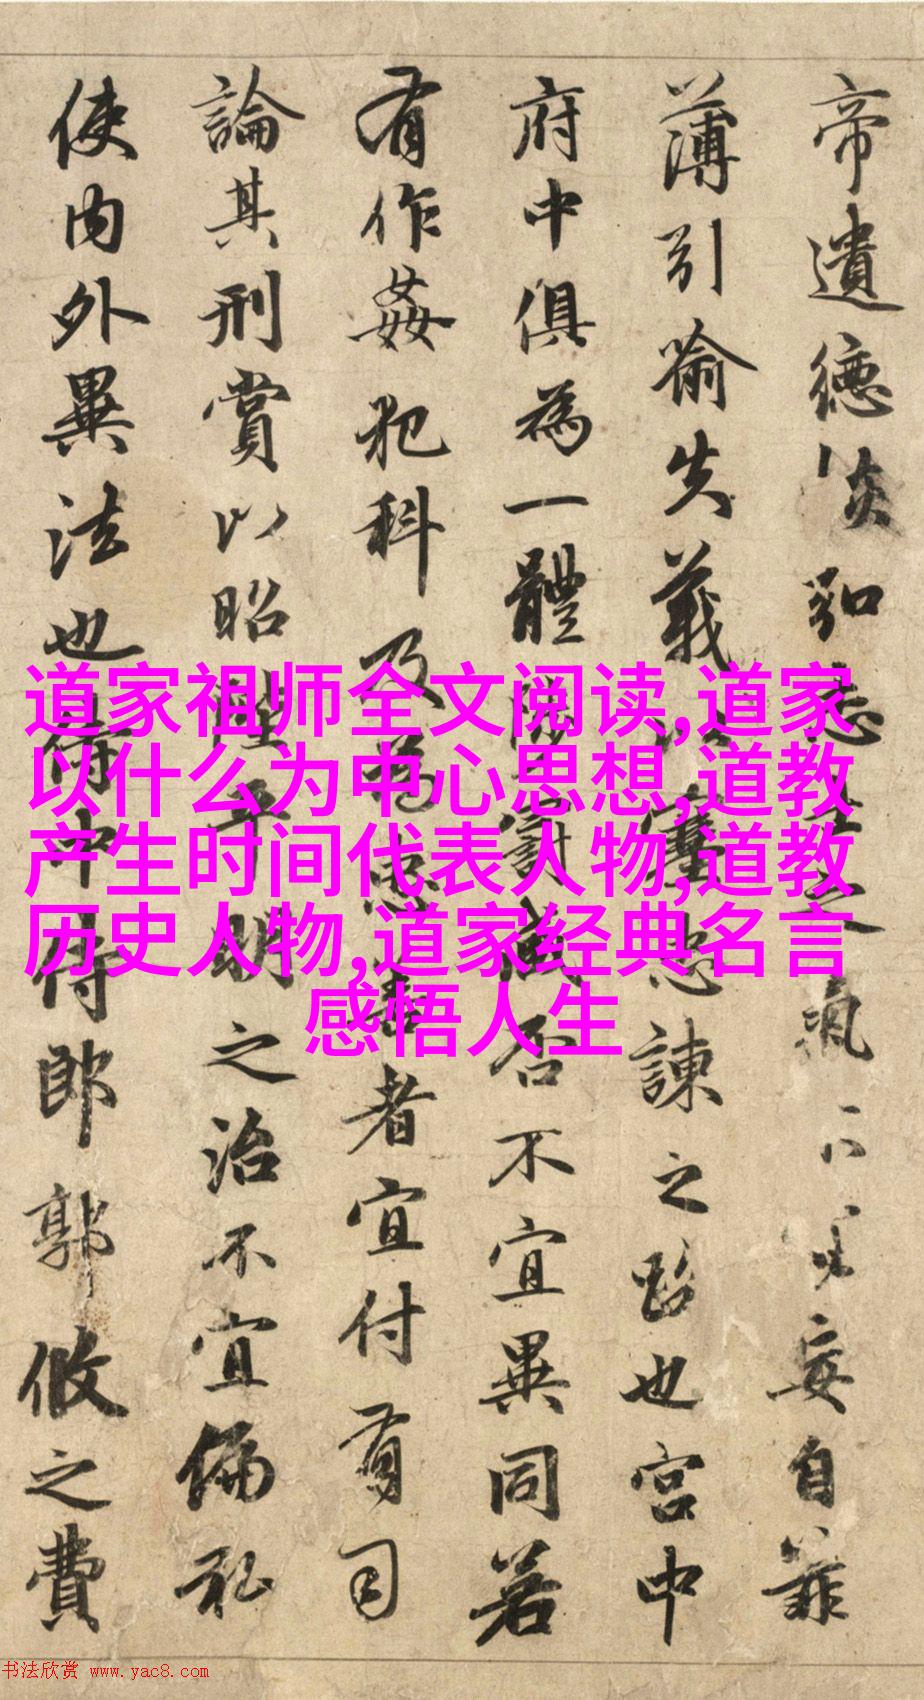 帝遺德恢弘志士之氣不妄自菲
薄引喻失義以塞忠諫之路也宮中
府中俱為一體陟罰臧否不宜異同若
有作姦犯科及為忠善者宜付有司
論其刑賞以昭陛平明之治不宜偏私
使內外異法也侍中侍郎郭攸之費
道家祖师全文阅读,道家
以什么为中心思想,道教
产生时间代表人物,道教
历史人物,道家经典名言
感悟人生
书法欣赏 www.yac8.com